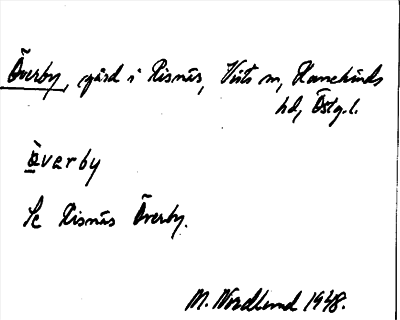 Överby, gård i Kisnäs, Viste sn, Hanekinds
hd, Östg.l.
Överby
Se Kisnäs Överby.
M. Nordlund 1948.